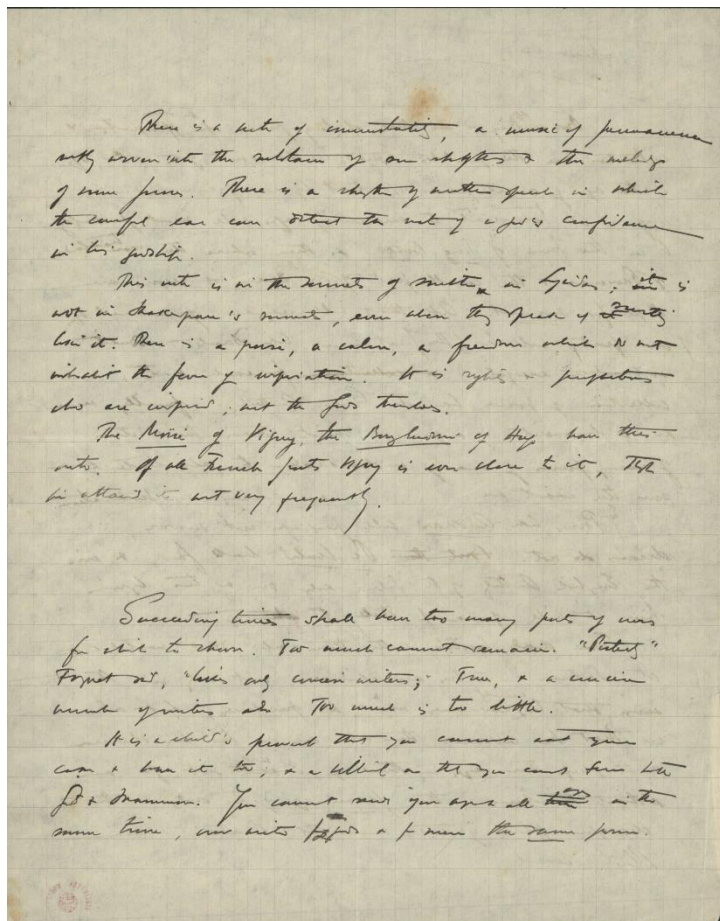 There is a note of immortality, a music of permanence
subtly woven into the substance of some rhythms & the melody
of some poems. There is a rhythm of another speech in which
the careful ear can detect the note of a god's confidence
in his godship.
This note is in the sonnets of in Lycidas; it is
not in Shakespeare's sonnets, even when they speak of
it. There is a poise, a calm, a freedom which do not
inhabit the fever of inspiration. It is &
who are inspired; not the Gods themselves.
The Moïse of Vigny, the of Hugo have this
note. Of all French poets Vigny is ever close to it, Though
he attains it not very frequently.
Succeeding times shall have too many poets of ours
for which to choose. Too much cannot remain. "Posterity"
Faguet said, "likes only concise writers;" True, & a concise
number of writers also Too much is too little.
It is a child's proverb that you cannot eat your
cake & have it too; & a biblical one that you cannot serve both
God & Mammon. You cannot your age & all in the
same time, nor write for gods & for men the same poem.